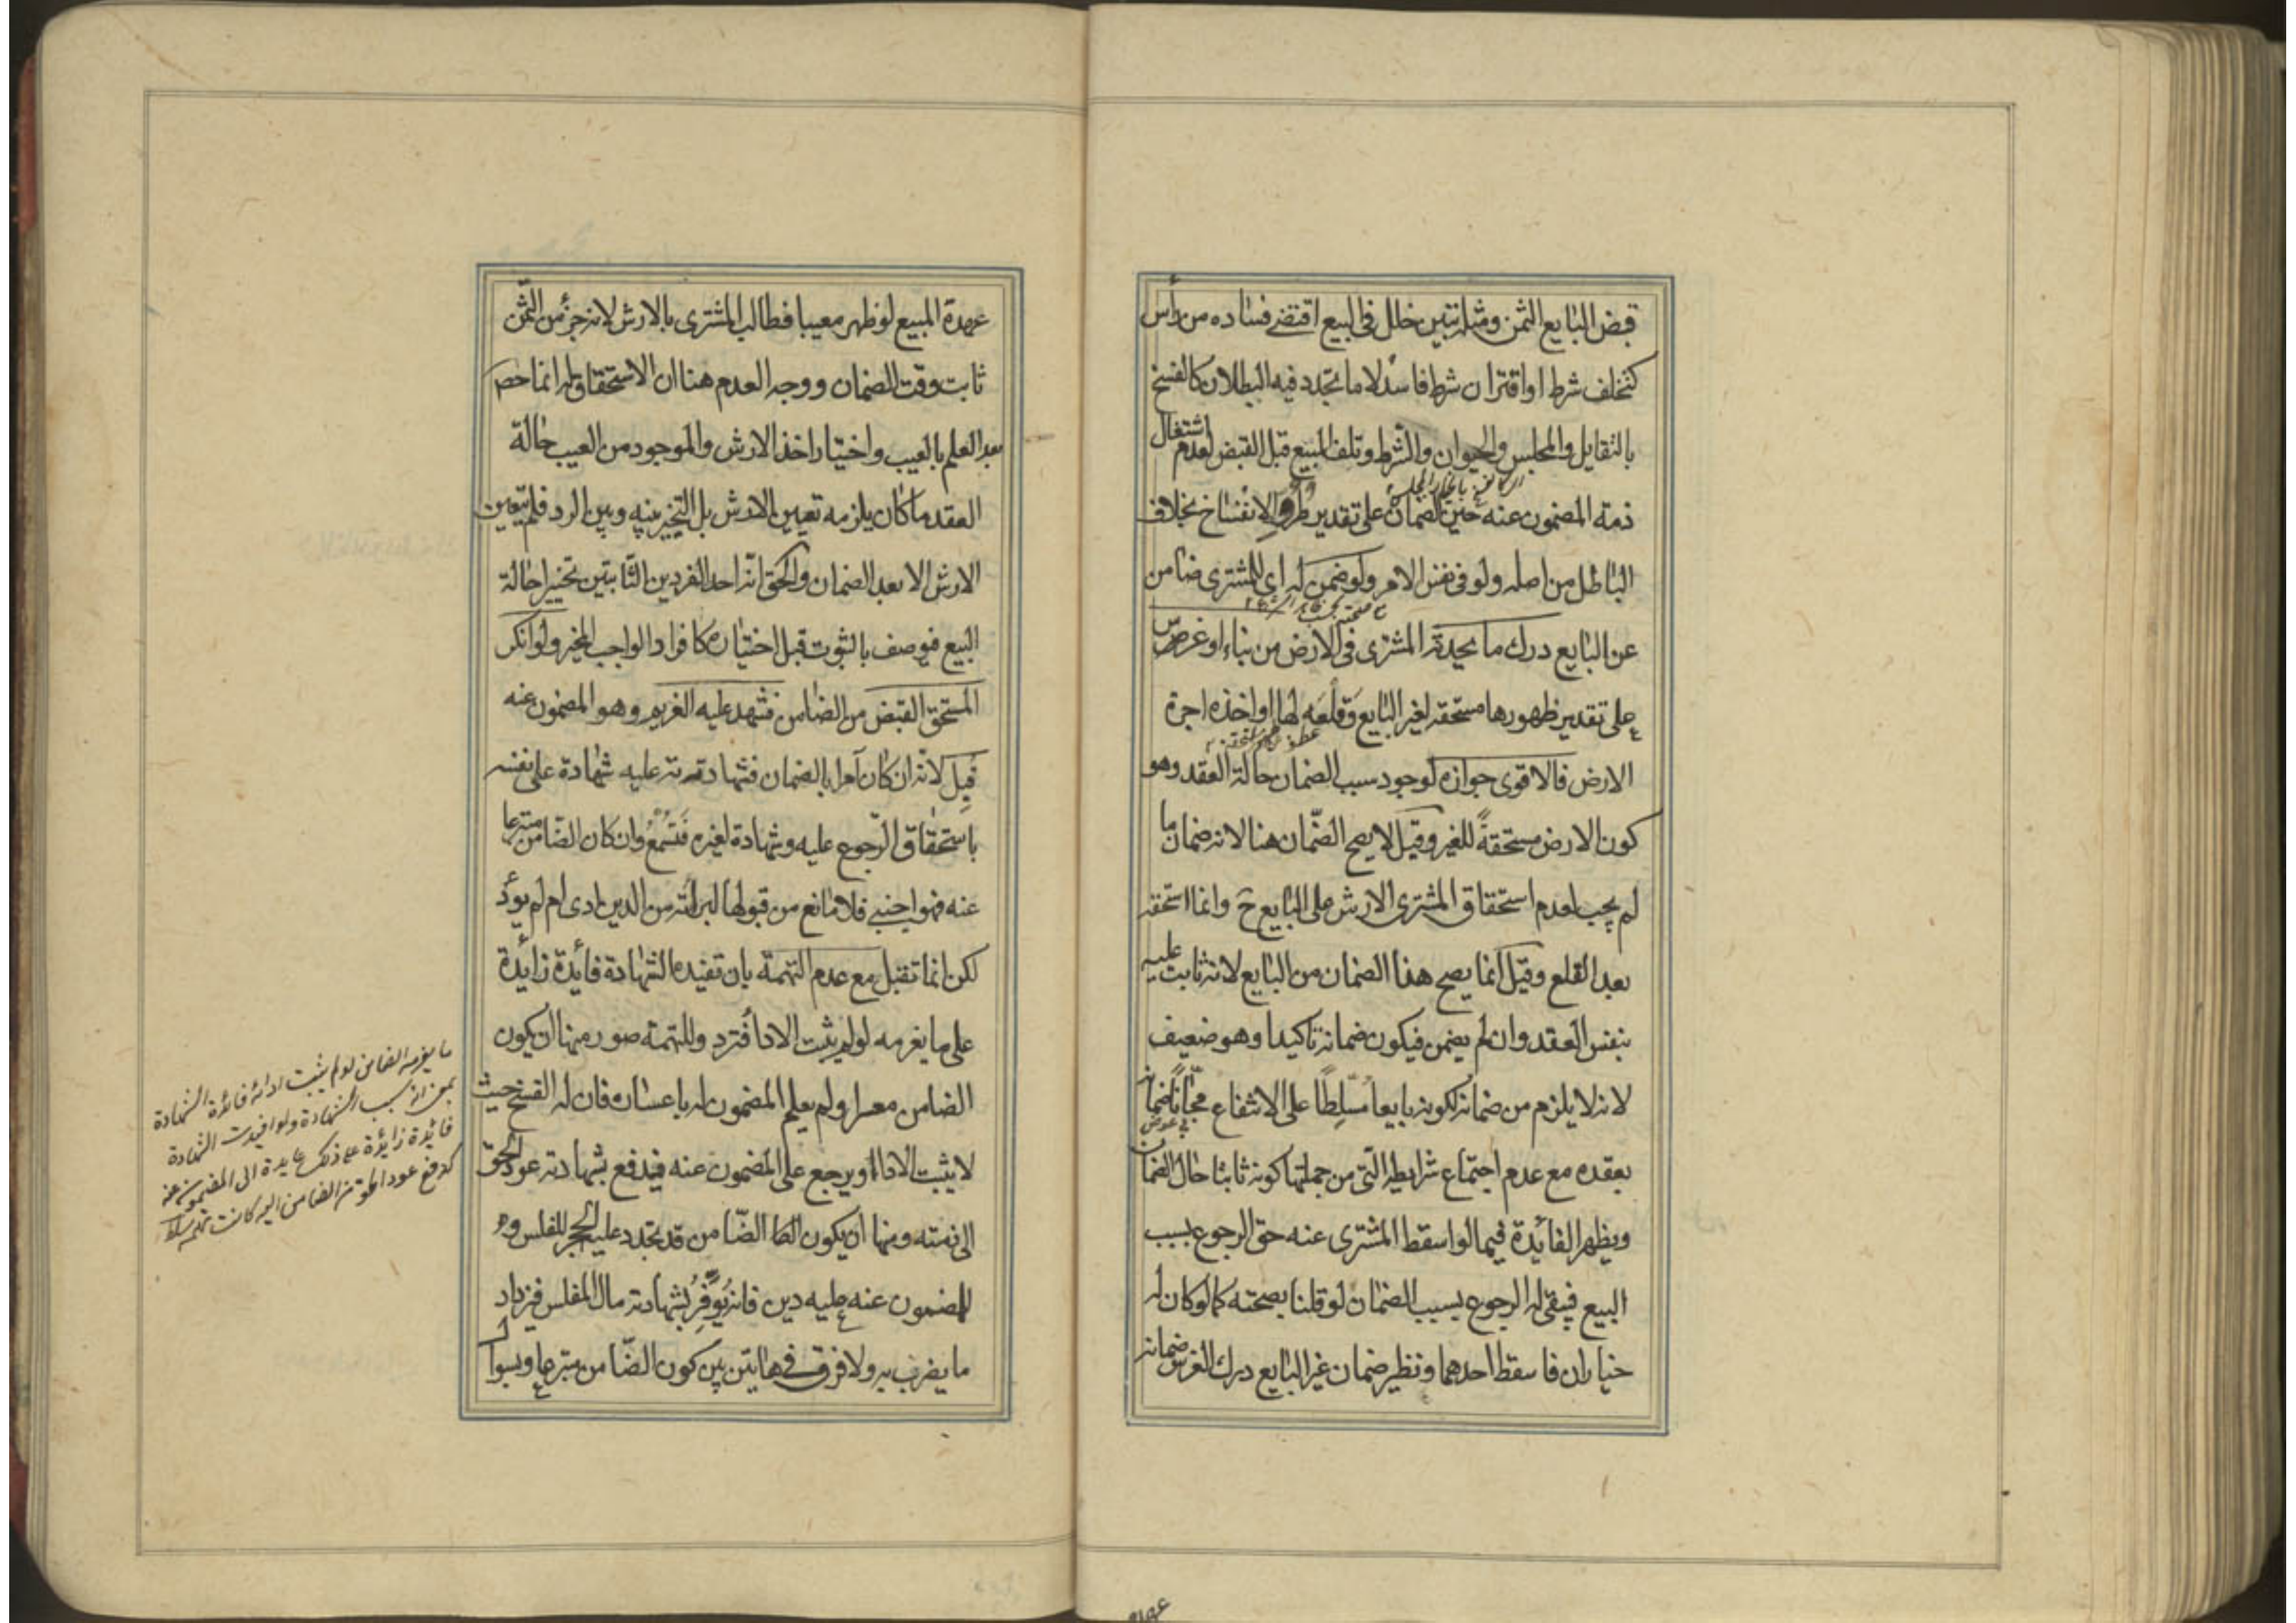 قبض البايع الثمن ومثله تبين خلل في البيع اقتضى فساده من رأس
كتخلف شرط او اقتران شرط فاسد لا ما تجدد فيه البطلان كالفسخ
بالتقايل والمجلس والحيوان والشرط وتلف المبيع قبل القبض لعدم اشتغال
ذمة المضمون عنه حين الضمان على تقدير طروِّ الانفساخ بخلاف
الباطل من اصله ولو في نفس الامر ولو ضمن له اي للمشترى ضامن
عن البايع درك ما يحدثه المشترى في الارض من بناء او غرس
على تقدير ظهورها مستحقة لغير البايع وَقلعَه لها او اخذه اجرة
الارض فالاقوى جوازه لوجود سبب الضمان حالة العقد وهو
كون الارض مستحقةً للغير وقيل لا يصح الضّمان هنا لانه ضمان ما
لم يجب لعدم استحقاق المشترى الارش على البايع ح وانما استحقه
بعد القلع وقيل انما يصح هذا الضمان من البايع لانه ثابت عليه
بنفس العقد وان لم يضمن فيكون ضمانه تاكيدا وهو ضعيف
لانه لا يلزم من ضمانه لكونه بايعا مُسَلِطًا على الانتفاع مجّانًا ضمانه
بعقده مع عدم اجتماع شرايطه الّتى من جملتها كونه ثابتا حال الضمان
ويظهر الفائدة فيما لو اسقط المشترى عنه حق الرجوع بسبب
البيع فيبقى له الرجوع بسبب الضمان لو قلنا بصحته كما لو كان له
خياران فاسقط احدهما ونظير ضمان غير البايع درك الغرس ضمانه
عهدة المبيع لو ظهر معيبا فطالب المشترى بالارش لانه جزء من الثّمن
ثابت وقت الضمان ووجه العدم هنا ان الاستحقاق له انما حصل
بعد العلم بالعيب واختيار اخذ الارش والموجود من العيب حالة
العقد ما كان يلزمه تعيين الارش بل التخيير بينه وبين الرد فلم يتعين
الارش الا بعد الضمان والحق انّه احد الفردين الثابتين تخييرا حالة
البيع فيوصف بالثبوت قبل اختياره كافراد الواجب المخير ولو انكر
المستحق القبض من الضامن فشهد عليه الغريم وهو المضمون عنه
قُبِل لانه ان كان آمرا بالضمان فشهادته عليه شهادة على نفسه
باستحقاق الرّجوع عليه وشهادة لغيره فَتُسْمَعُ وان كان الضّامن متبرعا
عنه فهو اجنبى فلا مانع من قبولها لبرائته من الدين ادى ام لم يؤد
لكن انما تقبل مع عدم التهمة بان تفيده الشهادة فائدة زائدة
على ما يغرمه لو لم يثبت الاداء فترد وللتهمة صور منها ان يكون
الضامن معسرا ولم يعلم المضمون له باعساره فان له الفسخ حيث
لا يثبت الاداء ويرجع على المضمون عنه فيدفع بشهادته عود الحقّ
الى ذمته ومنها ان يكون الضّامن قد تجدد عليه الحجر للفلس و
للمضمون عنه عليه دين فانه يُوَفِّرُ بشهادته مال المفلس فيزداد
ما يضرب به ولا فرق في هاتين بين كون الضّامن متبرعا وبسؤال
ما يغرمه الضامن لو لم يثبت ادائه فائدة الشهادة
بسبب الشهادة ولو افيدت الشهادة
فائدة زائدة على ذلك عايدة الى المضمون عنه
كدفع عود الضامن اليه كانت